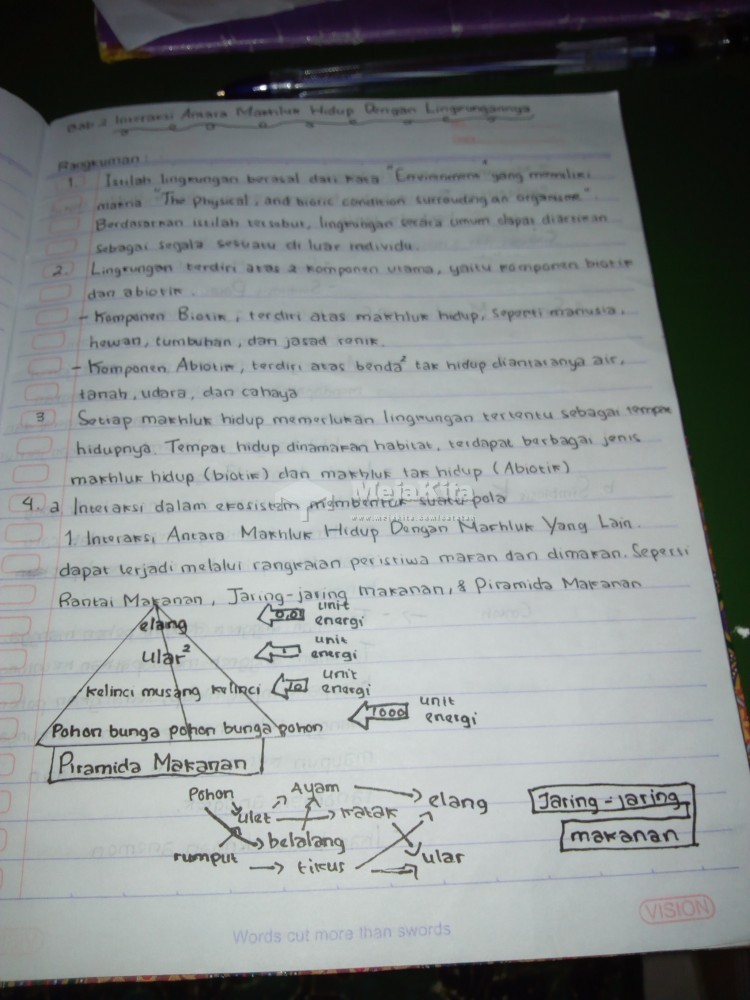 Bab 2 Interaksi Antara Makhluk Hidup Dengan Lingkungannya
Rangkuman :
1. Istilah lingkungan berasal dari kata "Environment" yang memiliki
makna "The physical, and biotic condition surrouding an organism".
Berdasarkan istilah tersebut, lingkungan secara umum dapat diartikan
sebagai segala sesuatu di luar individu.
2. Lingkungan terdiri atas 2 komponen utama, yaitu komponen biotik
dan abiotik.
- Komponen Biotik, terdiri atas makhluk hidup, seperti manusia,
hewan, tumbuhan, dan jasad renik.
- Komponen Abiotik, terdiri atas benda² tak hidup diantaranya air,
tanah, udara, dan cahaya
3 Setiap makhluk hidup memerlukan lingkungan tertentu sebagai tempat
hidupnya. Tempat hidup dinamakan habitat, terdapat berbagai jenis
makhluk hidup (biotik) dan makhluk tak hidup (Abiotik)
4. a Interaksi dalam ekosistem membentuk suatu pola
MejaKita
1. Interaksi Antara Makhluk Hidup Dengan Makhluk Yang Lain.
dapat terjadi melalui rangkaian peristiwa makan dan dimakan. Seperti
Rantai Makanan, Jaring-jaring makanan, & Piramida Makanan
elang 0,01 unit energi
ular² 1 unit energi
kelinci musang kelinci 10 unit energi
Pohon bunga pohon bunga pohon 1000 unit energi
Piramida Makanan
Pohon Ayam elang
ulet katak
belalang
rumput tikus ular
Jaring-jaring
makanan
VISION
Words cut more than swords